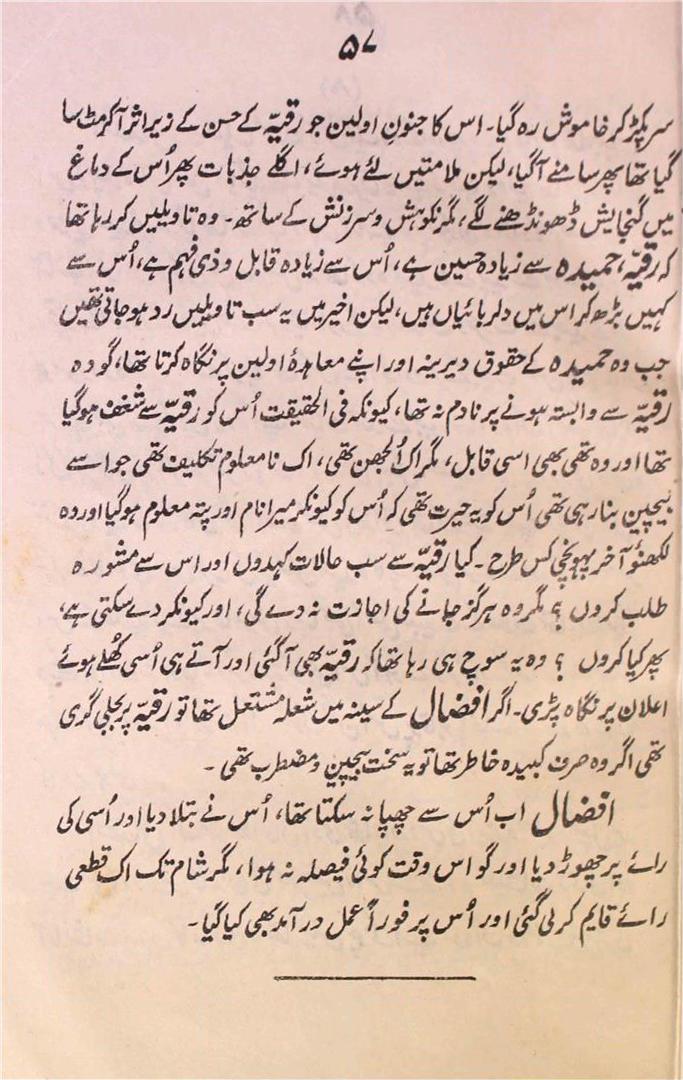 ۵۷
سر پکڑ کر خاموش رہ گیا۔ اس کا جنونِ اولین جو رقیّہ کے حسن کے زیر اثر آکر مٹ سا
گیا تھا پھر سامنے آگیا، لیکن ملامتیں لئے ہوئے، اگلے جذبات پھر اُس کے دماغ
میں گنجایش ڈھونڈھنے لگے، مگر نکوہش و سرزنش کے ساتھ۔ وہ تاویلیں کر رہا تھا
کہ رقیّہ، حمیدہ سے زیادہ حسین ہے، اُس سے زیادہ قابل و ذی فہم ہے، اُس سے
کہیں بڑھ کر اس میں دلربائیاں ہیں، لیکن اخیر میں یہ سب تاویلیں رد ہو جاتی تھیں
جب وہ حمیدہ کے حقوق دیرینہ اور اپنے معاہدۂ اولین پر نگاہ کرتا تھا، گو وہ
رقیّہ سے وابستہ ہونے پر نادم نہ تھا، کیونکہ فی الحقیقت اُس کو رقیّہ سے شغف ہوگیا
تھا اور وہ تھی بھی اسی قابل، مگر اک اُلجھن تھی، اک نامعلوم تکلیف تھی جو اسے
بیچین بنا رہی تھی اُس کو یہ حیرت تھی کہ اُس کو کیونکر میرا نام اور پتہ معلوم ہوگیا اور وہ
لکھنؤ آخر پہونچی کس طرح۔ کیا رقیّہ سے سب حالات کہدوں اور اس سے مشورہ
طلب کروں ؟ مگر وہ ہرگز جانے کی اجازت نہ دے گی، اور کیونکر دے سکتی ہے،
پھر کیا کروں ؟ وہ یہ سوچ ہی رہا تھا کہ رقیّہ بھی آگئی اور آتے ہی اُسی کُھلے ہوئے
اعلان پر نگاہ پڑی۔ اگر افضال کے سینہ میں شعلہ مشتعل تھا تو رقیّہ پر بجلی گری
تھی اگر وہ صرف کبیدہ خاطر تھا تو یہ سخت بیچین و مضطرب تھی۔
افضال اب اُس سے چھپا نہ سکتا تھا، اُس نے بتلا دیا اور اُسی کی
رائے پر چھوڑ دیا اور گو اس وقت کوئی فیصلہ نہ ہوا، مگر شام تک اک قطعی
رائے قایم کر لی گئی اور اُس پر فوراً عمل درآمد بھی کیا گیا۔